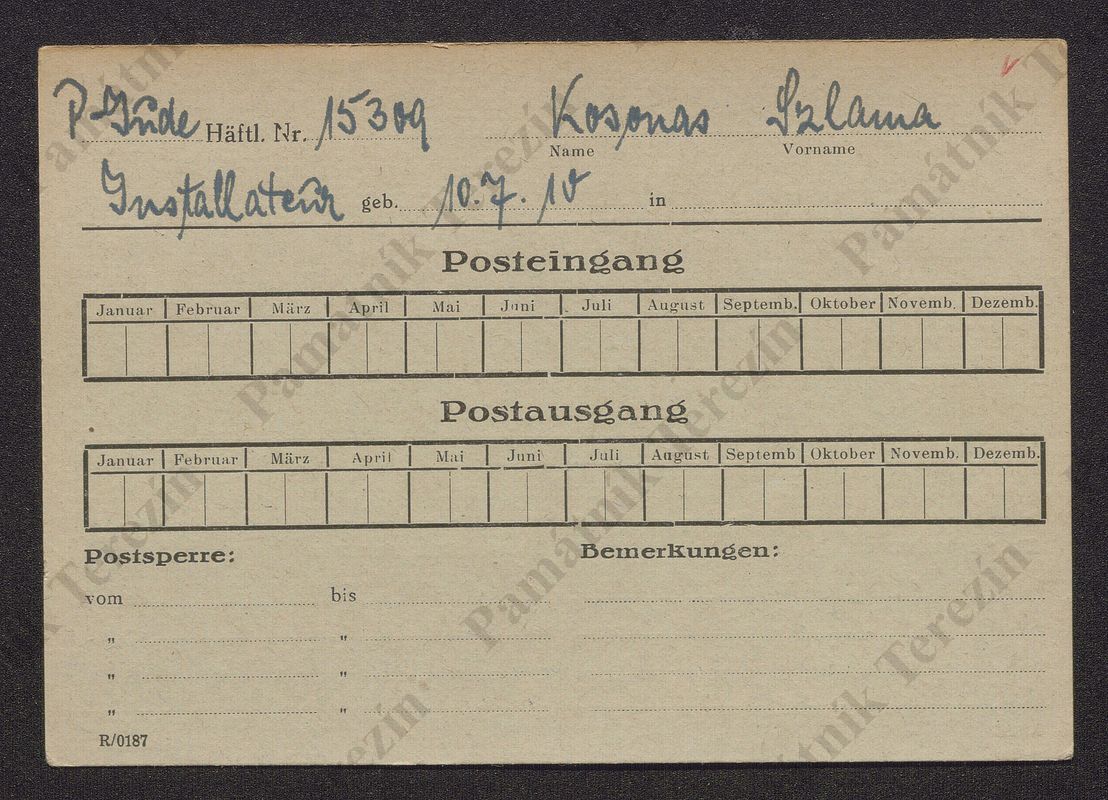 P-Jude Häftl. Nr. 15309 Kosonas Szlama
Name Vorname
Installateur geb. 10.7.10 in
Posteingang
Januar Februar März April Mai Juni Juli August Septemb. Oktober Novemb. Dezemb.
Postausgang
Januar Februar März April Mai Juni Juli August Septemb Oktober Novemb. Dezemb.
Postsperre: Bemerkungen:
vom bis
" "
" "
" "
R/0187
Památník Terezín